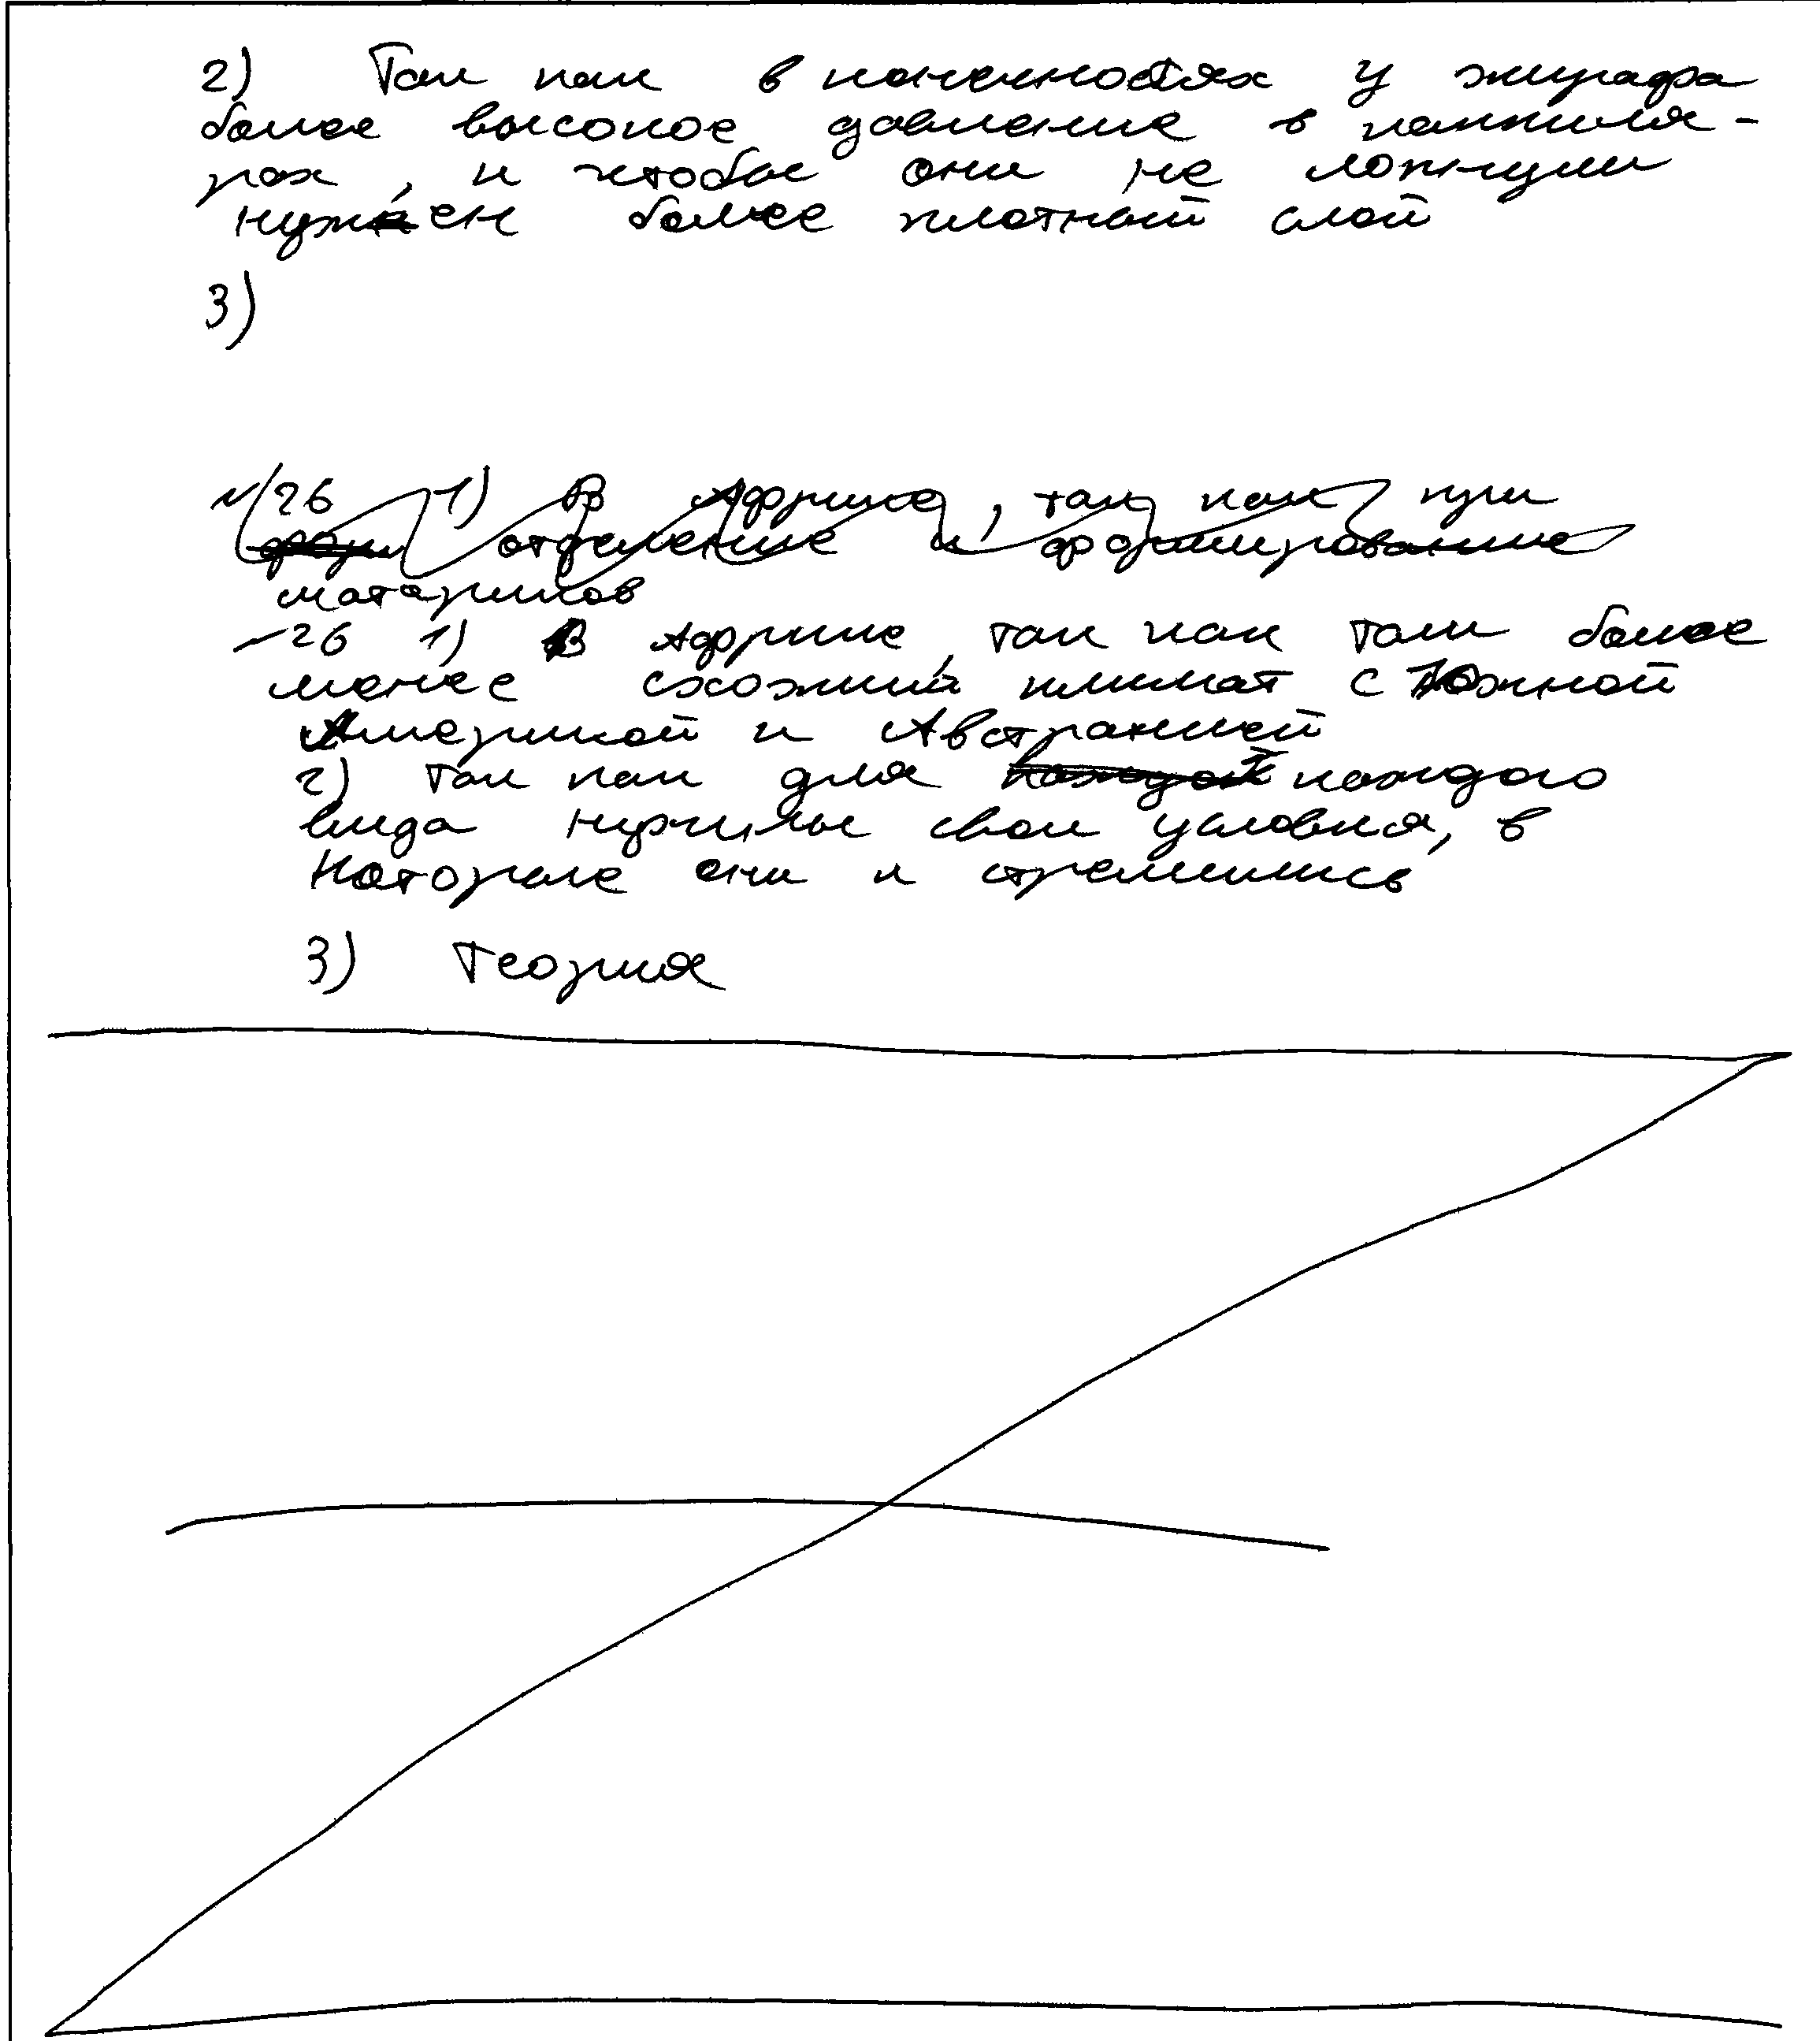 2) Так как в конечностях у жирафа
более высокое давление в капиля-
рах, и чтобы они не лопнули
нужен более плотный слой
3)
№26 1) В Африке, так как при
отделение и формирование
материков
№26 1) В Африке, так как там более
менее схожий климат с Южной
Америкой и Австралией
2) так как для каждого
вида нужны свои условия, в
которые они и стремились
3) Теория